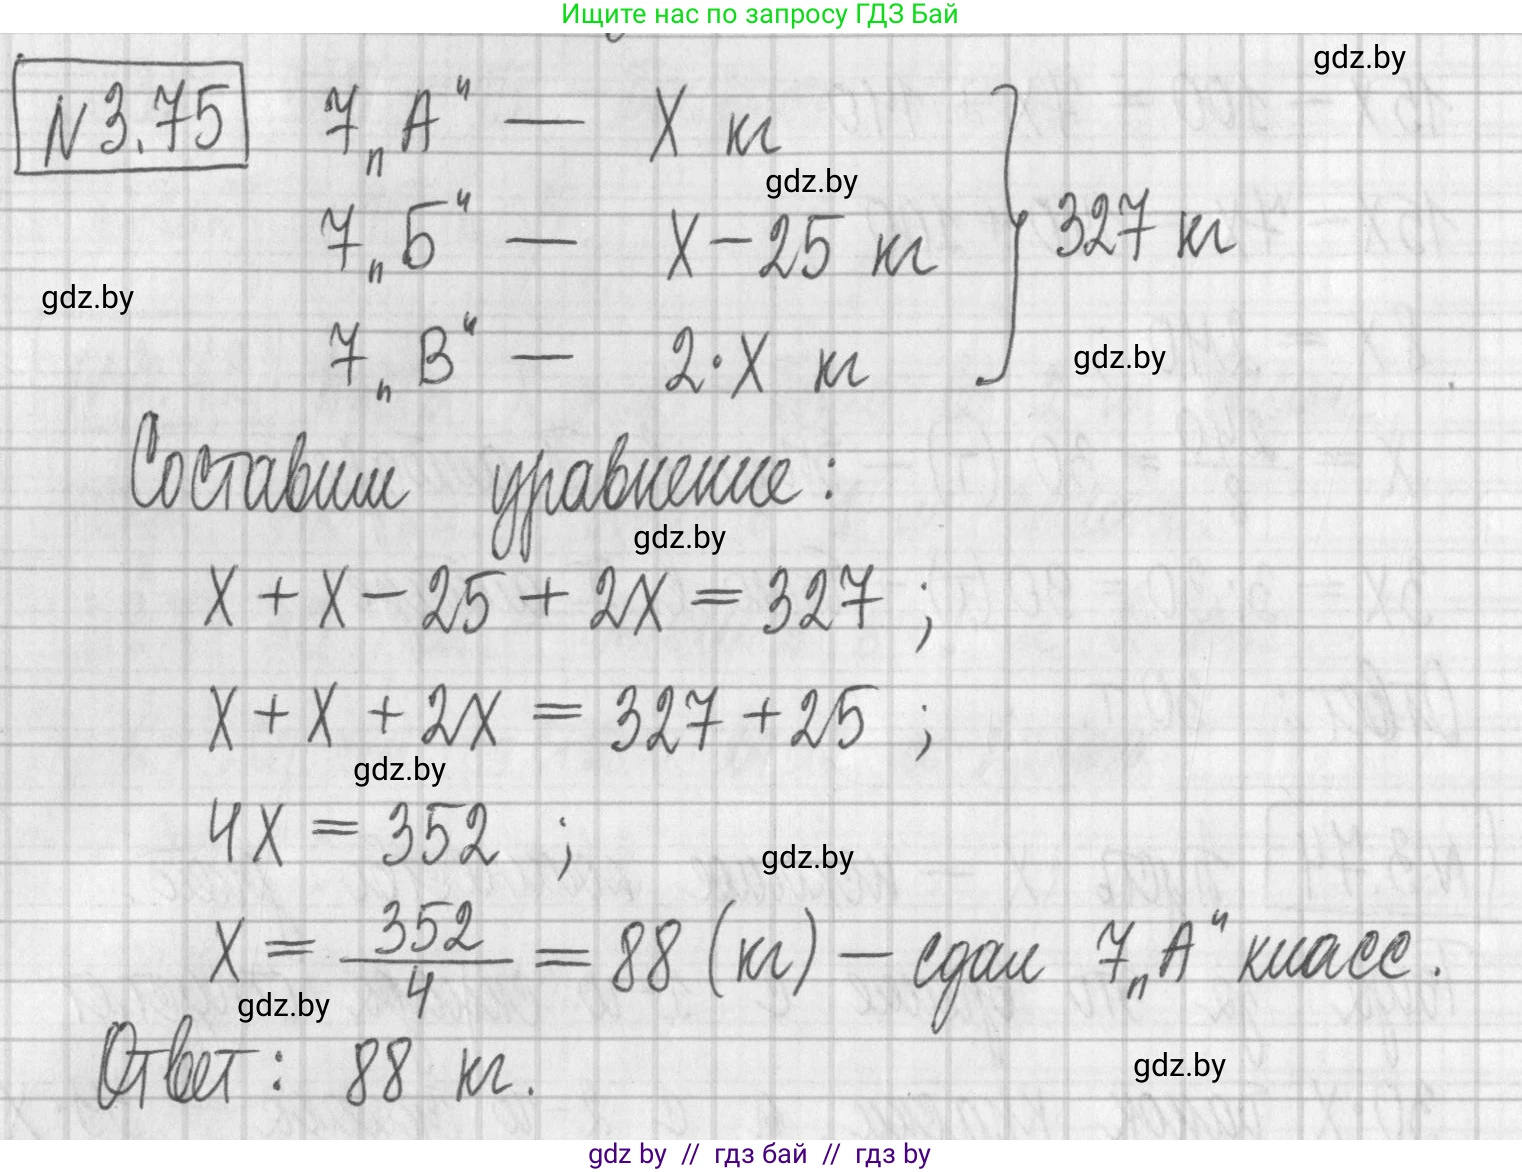 Ищите нас по запросу ГДЗ Бай
gdz.by
N 3.75 7„А“ — x кг
gdz.by
7„Б“ — x − 25 кг } 327 кг
gdz.by
7„В“ — 2·x кг
gdz.by
Составим уравнение:
gdz.by
x + x − 25 + 2x = 327 ;
x + x + 2x = 327 + 25 ;
gdz.by
4x = 352 ;
gdz.by
x = 352/4 = 88 (кг) — сдал 7„А“ класс.
gdz.by
Ответ: 88 кг.
gdz.by
gdz by // гдз бай // гдз by